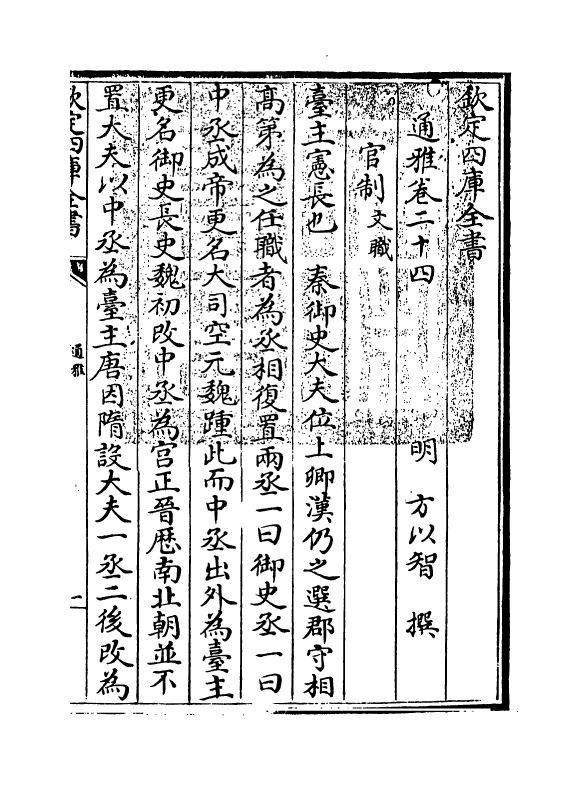 欽定四庫全書
通雅卷二十四
明 方以智 撰
官制 文職
臺主憲長也 秦御史大夫位上卿漢仍之選郡守相
髙第為之任職者為丞相復置兩丞一曰御史丞一曰
中丞成帝更名大司空元魏踵此而中丞出外為臺主
更名御史長史魏初改中丞為宫正晉歴南北朝並不
置大夫以中丞為臺主唐因隋設大夫一丞二後改為
欽定四庫全書
通雅
一